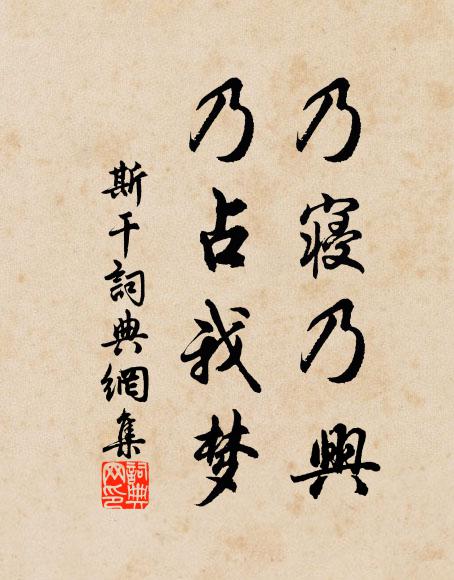 乃寢乃興
乃占我梦
斯干詞典網集
詞典网印